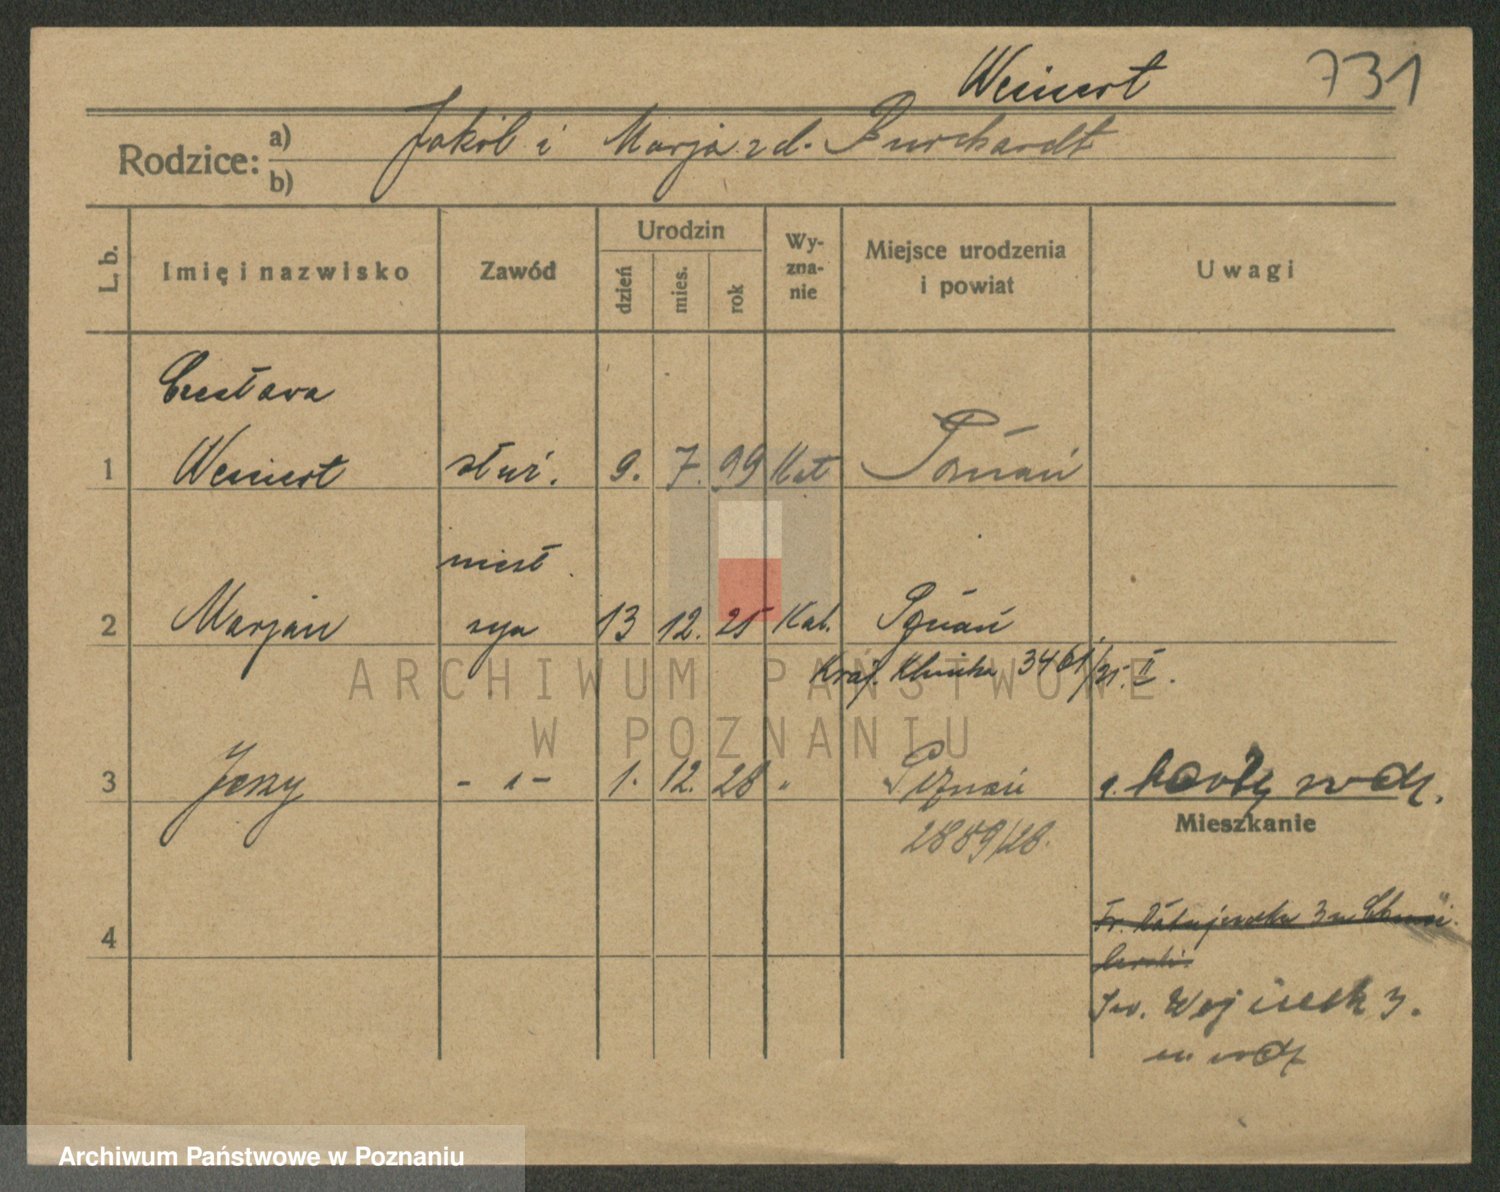 Weinert 731
Rodzice: a) b) Jakób i Marja z d. Burchardt
L. b. Imię i nazwisko Zawód Urodzin dzień mies. rok Wy-zna-nie Miejsce urodzenia i powiat Uwagi
Czesława
1 Weinert służ. 9. 7. 99 Kat Poznań
nieśl
2 Marjan syn 13 12. 25 Kat. Poznań
Kraj. Klinika 3461/25. II.
3 Jerzy - " - 1. 12. 28 " Poznań
2889/28.
Mieszkanie
4
Św. Wojciech 3.
ARCHIWUM PAŃSTWOWE
W POZNANIU
Archiwum Państwowe w Poznaniu